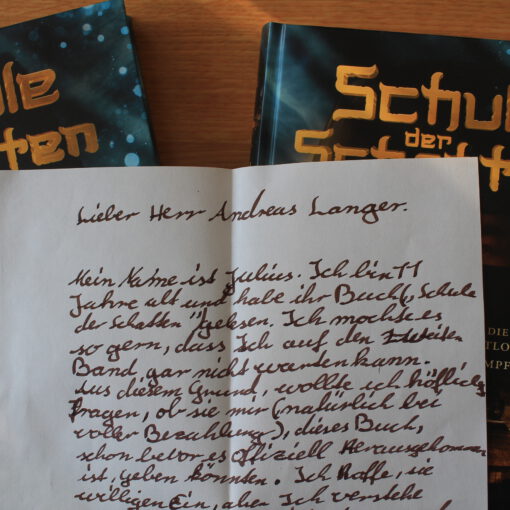 ule
tten
Schul
der
Schatt
DIE
TLO
MPF
Lieber Herr Andreas Langer.
Mein Name ist Julius. Ich bin 11
Jahre alt und habe ihr Buch („Schule
der Schatten" gelesen. Ich mochte es
so gern, dass Ich auf den Zweiten
Band, gar nicht warten kann.
Aus diesem Grund, wollte ich höflich
Fragen, ob sie mir (natürlich bei
voller Bezahlung), dieses Buch,
schon bevor es Offiziell Herausgekommen
ist, geben könnten. Ich Hoffe, sie
willigen Ein, aber Ich verstehe